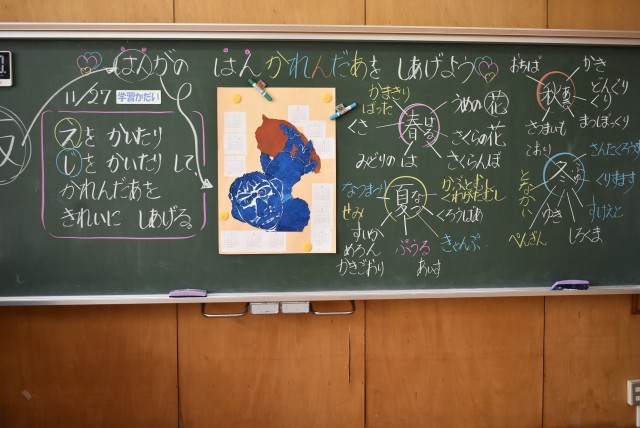 はんがの はんかれんだあを しあげよう
11/27 学習かだい
文をかいたり
しをかいたりして、
かれんだあを
きれいに しあげる。
春 はる
かまきり
ばった
くさ
みどりの は
うめの花
さくらの花
さくらんぼ
夏 なつ
なつまつり
せみ
すいか
めろん
かきごおり
ぷうる
あいす
きゃんぷ
かぶとむし
くわがたむし
秋 あき
おちば
かき
どんぐり
くり
まつぼっくり
さつまいも
冬 ふゆ
こおり
となかい
ぺんぎん
ゆき
しろくま
さんたくろうす
くりすます